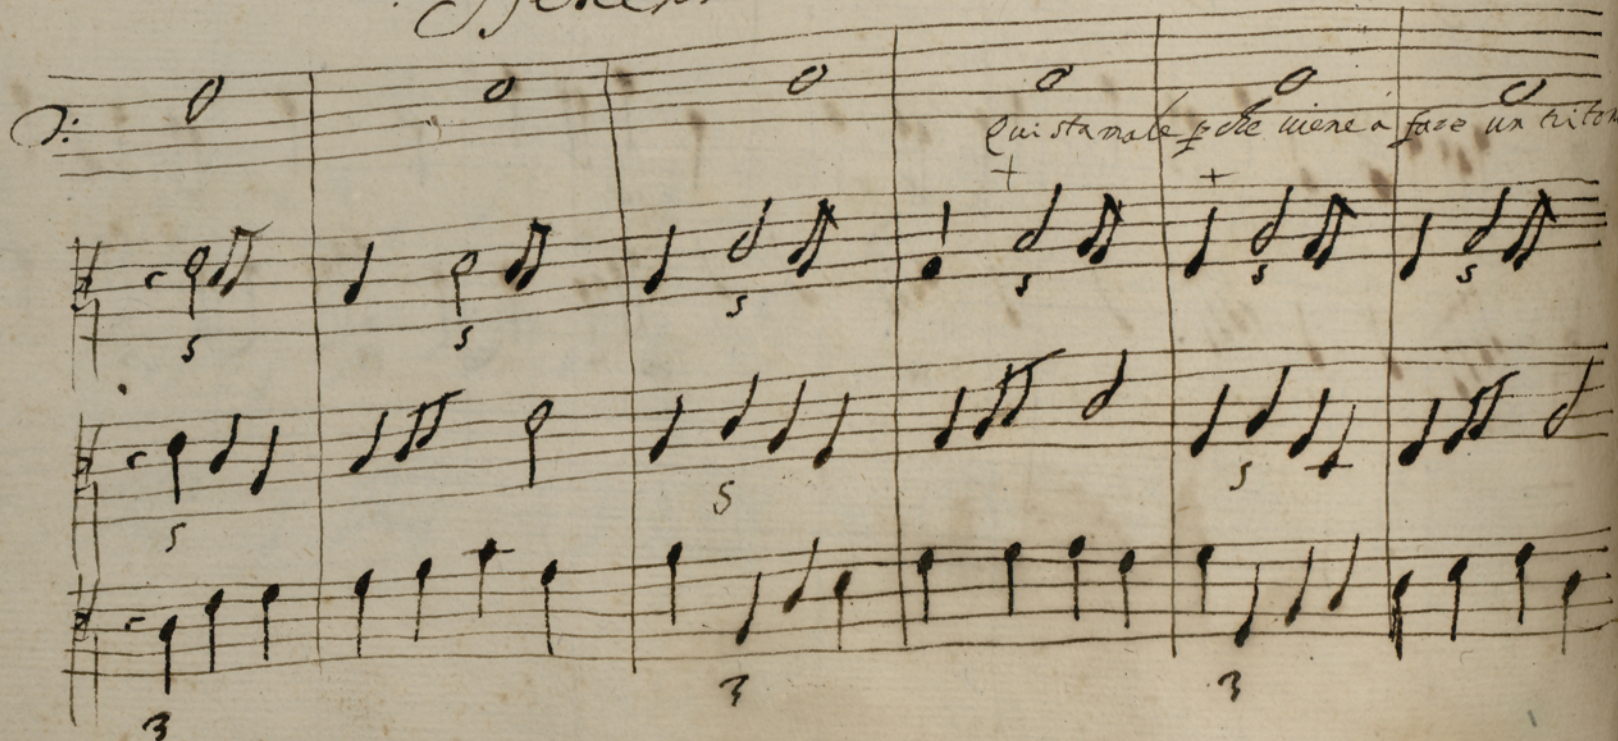 Qui sta male p che viene à fare un triton
+ +
5 5 5 5 5 5
5 5 5
3 3 3